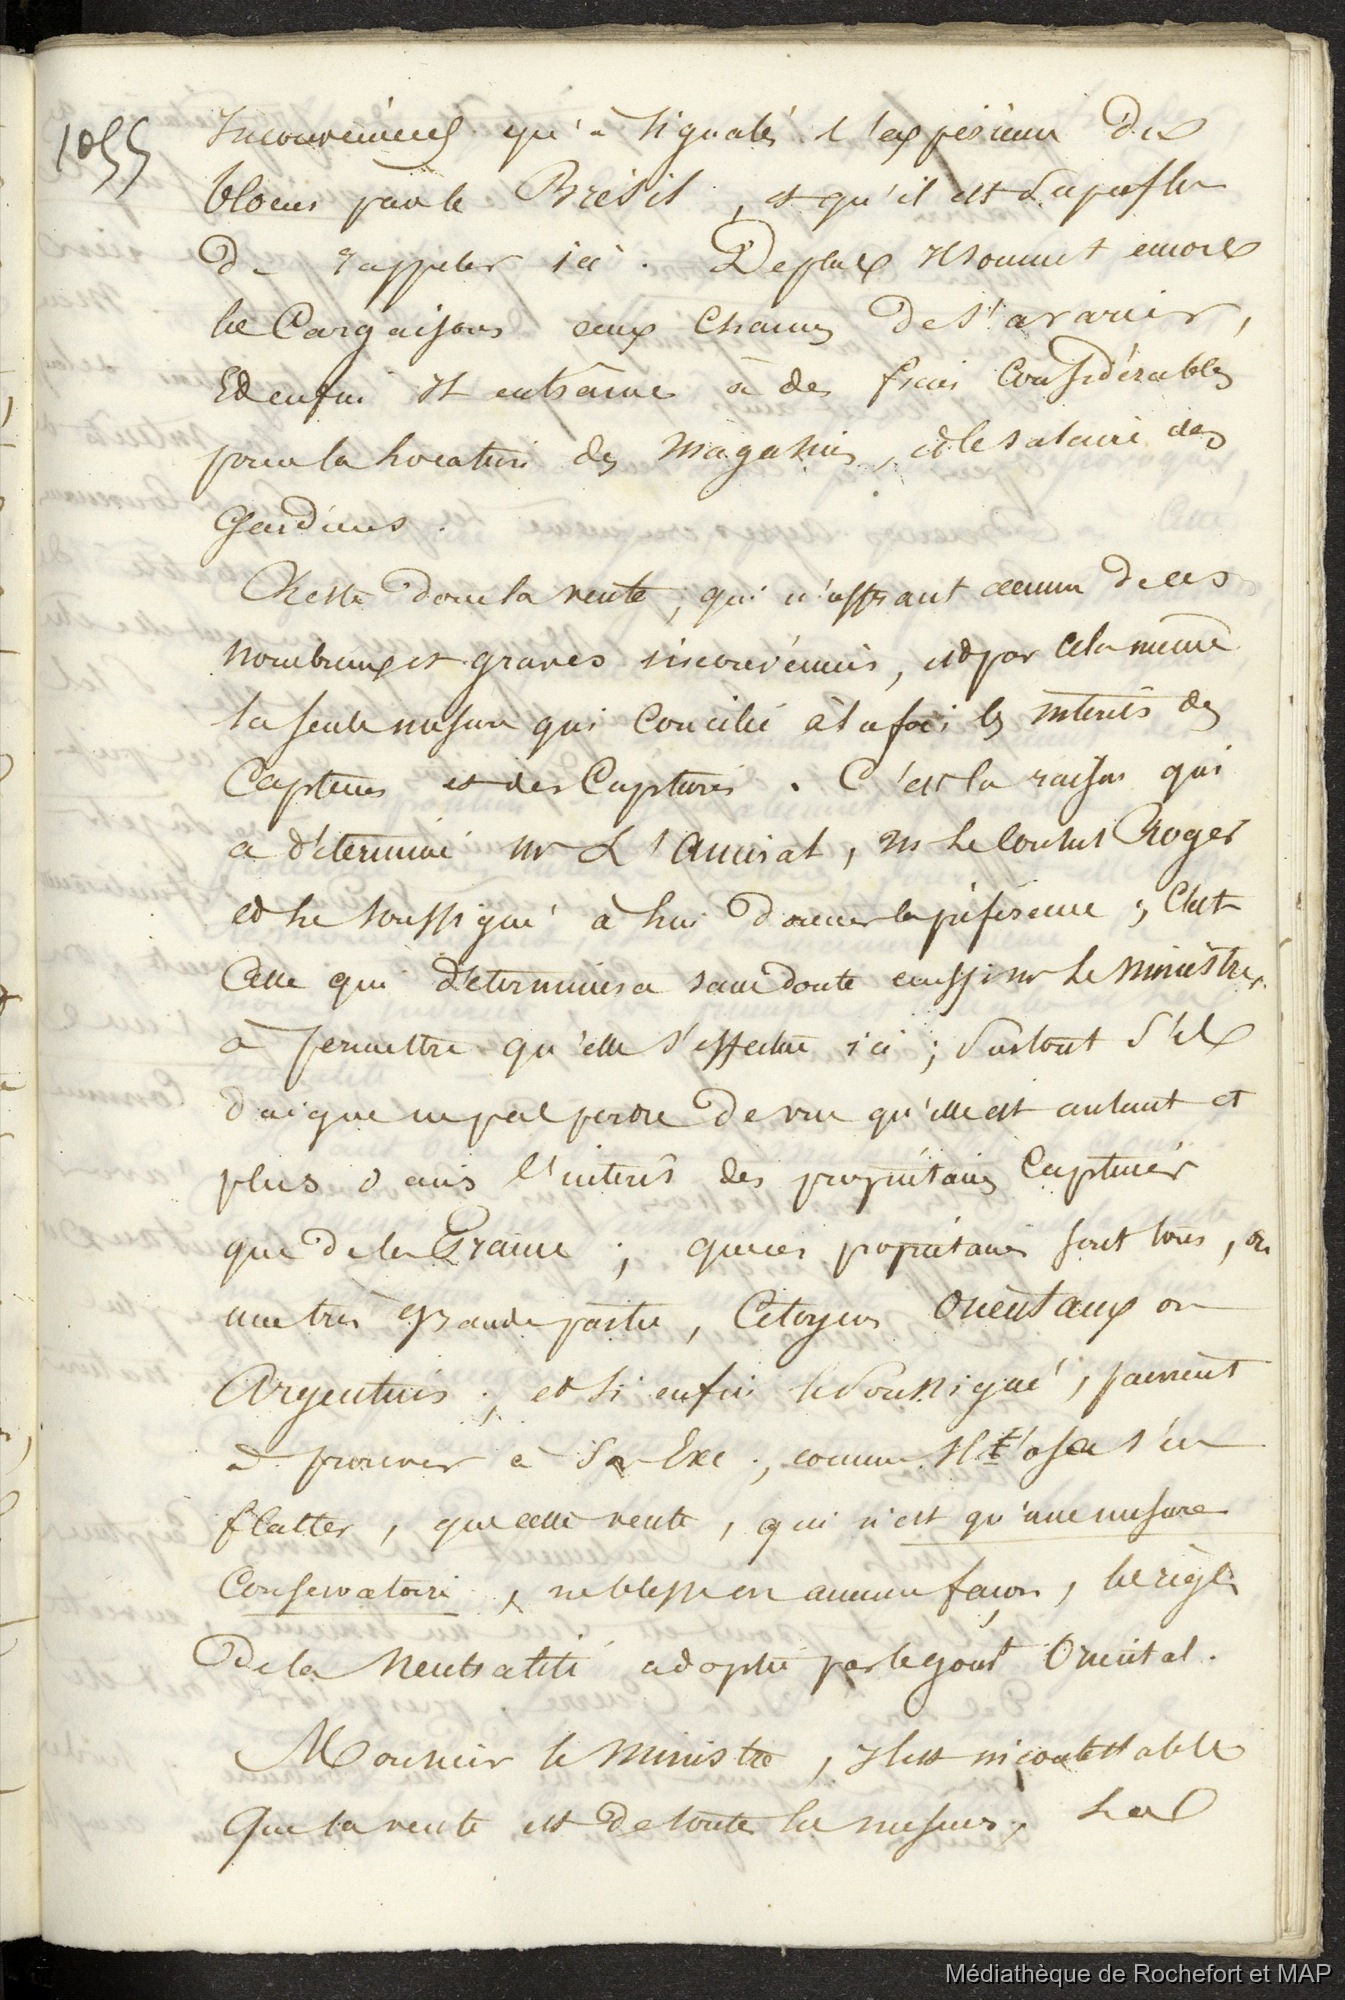 1055
Inconvéniens qu'a signalés l'expérience des
blocus par le Brésil, et qu'il est superflu
de rappeler ici. De plus Il soumet encore
les Cargaisons aux Chances de s'avarier,
Et enfin Il entraine à des frais Considérables
pour la location des Magasins, et le salaire des
Gardiens.
Reste donc la vente, qui n'offrant aucun de ces
nombreux et graves inconvéniens, est par cela même
la seule mesure qui Concilie à la fois les intérêts des
Capteurs et des Capturés. C'est la raison qui
a déterminé mr L'Amiral, m Le Consul Roger
et Le soussigné à lui donner la préférence ; C'est
Celle qui déterminera sans doute aussi mr Le Ministre
à permettre qu'elle s'effectue ici ; surtout s'il
daigne ne pas perdre de vue qu'elle est autant et
plus dans l'intérêt des propriétaires Capturés
que de la France ; que ces propriétaires sont tous, en
une très grande partie, Citoyens Orientaux ou
Argentins ; et si enfin le Soussigné, parvient
à prouver à Son Exc., comme Il ose s'en
flatter, que cette vente, qui n'est qu'une mesure
Conservatoire, ne blesse en aucune façon, les règles
de la Neutralité adoptée par le gout Oriental.
Monsieur le Ministre, Il est incontestable
Que la vente est de toutes les mesures, La
Médiathèque de Rochefort et MAP